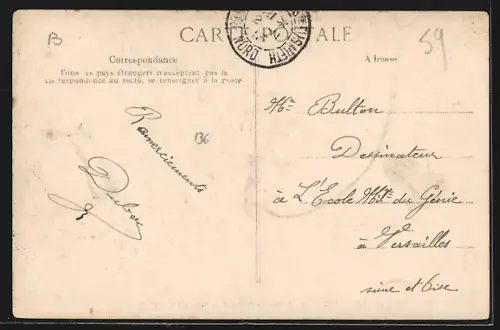 B
CARTE POSTALE
59
NORD
Correspondance
Tous les pays étrangers n'acceptent pas la
correspondance au recto, se renseigner à la poste
Adresse
B6
Remerciements
Mr Bulton
Dessinateur
à L'Ecole Mre du Génie
à Versailles
seine et Oise